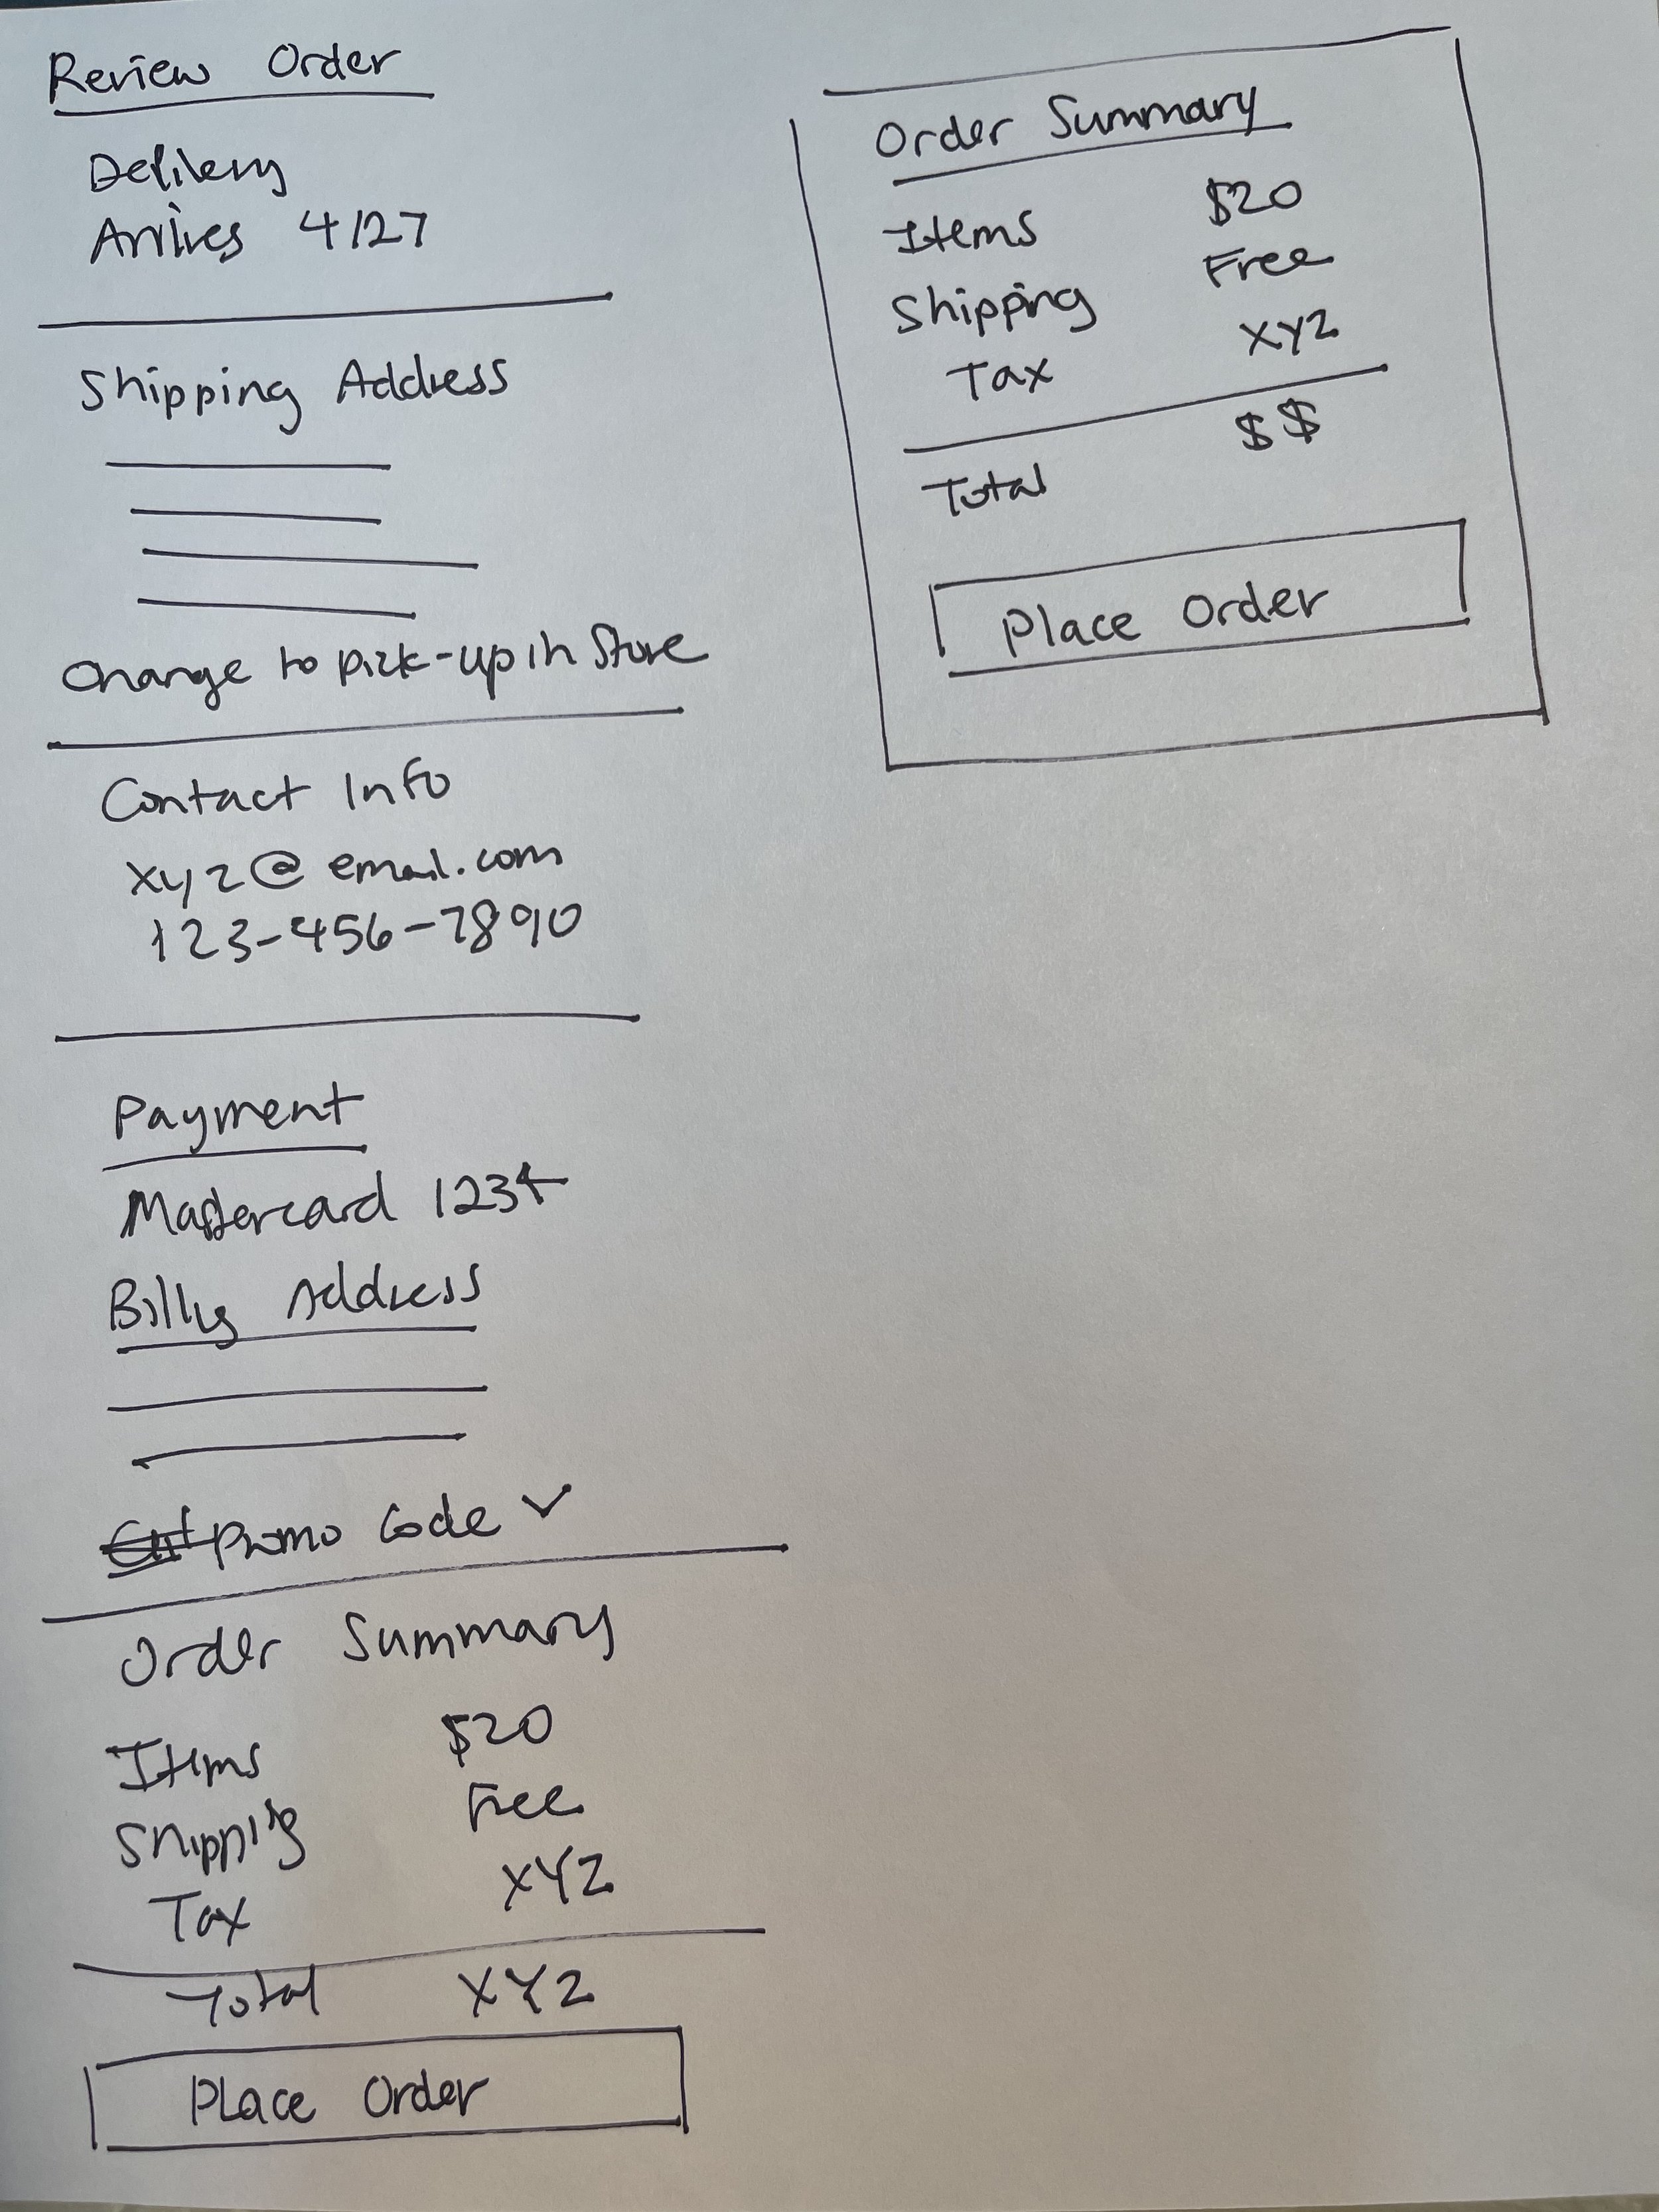 Review Order
Delivery
Arrives 4/27
Shipping Address
Change to pick-up in Store
Contact Info
xyz@email.com
123-456-7890
Payment
Mastercard 1234
Billing Address
Promo Code
Order Summary
Items $20
Shipping Free
Tax XYZ
Total XYZ
Place Order
Order Summary
Items $20
Shipping Free
Tax XYZ
Total $$
Place Order